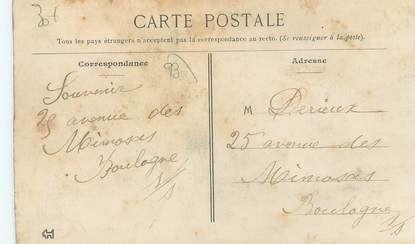 CARTE POSTALE
Tous les pays étrangers n'acceptent pas la correspondance au recto. (Se renseigner à la poste).
Correspondance
Adresse
Souvenir
25 avenue des
Mimosas
Boulogne
s/s
M Derieux
25 avenue des
Mimosas
Boulogne
s/s